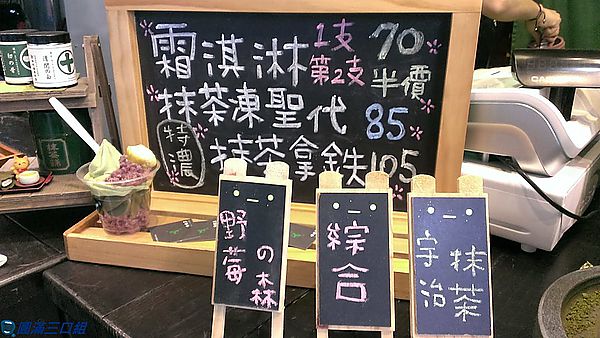 霜淇淋 1支 70
第2支 半價
抹茶凍聖代 85
特濃 抹茶拿鐵 105
野莓の森
綜合
宇治抹茶
圓滿三口組